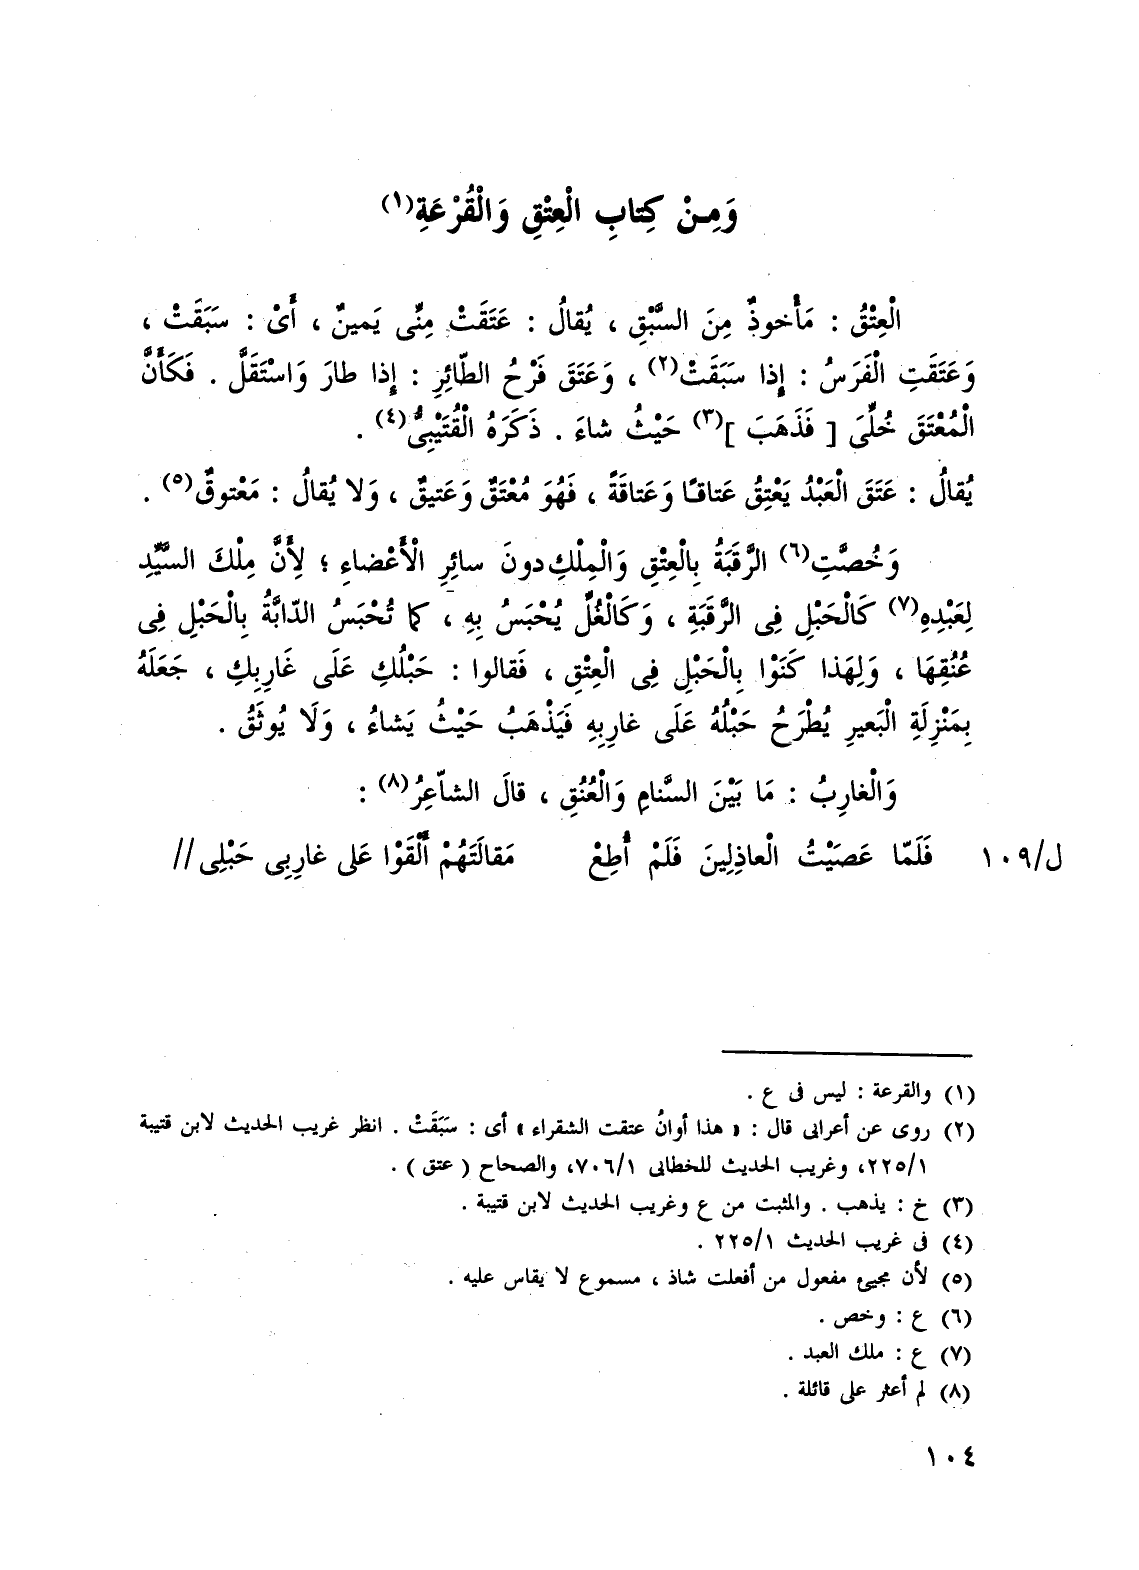 وَمِنْ كِتابِ الْعِتْقِ وَالْقُرْعَةِ(١)
الْعِتْقُ : مَأْخوذٌ مِنَ السَّبْقِ ، يُقالُ : عَتَقَتْ مِنِّى يَمينٌ ، أَىْ : سَبَقَتْ ،
وَعَتَقَتِ الْفَرَسُ : إِذا سَبَقَتْ(٢) ، وَعَتَقَ فَرْحُ الطّائِرِ : إِذا طارَ وَاسْتَقَلَّ . فَكَأَنَّ
الْمُعْتَقَ خُلِّىَ [ فَذَهَبَ ](٣) حَيْثُ شاءَ . ذَكَرَهُ الْقُتَيْبِىُّ(٤) .
يُقالُ : عَتَقَ الْعَبْدُ يَعْتِقُ عَتاقًا وَعَتاقَةً ، فَهُوَ مُعْتَقٌ وَعَتيقٌ ، وَلا يُقالُ : مَعْتوقٌ(٥) .
وَخُصَّتِ(٦) الرَّقَبَةُ بِالْعِتْقِ وَالْمِلْكِ دونَ سائِرِ الْأَعْضاءِ ؛ لِأَنَّ مِلْكَ السَّيِّدِ
لِعَبْدِهِ(٧) كَالْحَبْلِ فِى الرَّقَبَةِ ، وَكَالْغُلِّ يُحْبَسُ بِهِ ، كما تُحْبَسُ الدّابَّةُ بِالْحَبْلِ فِى
عُنُقِهَا ، وَلِهَذا كَنَوْا بِالْحَبْلِ فِى الْعِتْقِ ، فَقالوا : حَبْلُكِ عَلَى غَارِبِكِ ، جَعَلَهُ
بِمَنْزِلَةِ الْبَعيرِ يُطْرَحُ حَبْلُهُ عَلَى غارِبِهِ فَيَذْهَبُ حَيْثُ يَشاءُ ، وَلَا يُوثَقُ .
وَالْغارِبُ : مَا بَيْنَ السَّنامِ وَالْعُنُقِ ، قالَ الشاّعِرُ(٨) :
ل/١٠٩ فَلَمّا عَصَيْتُ الْعاذِلِينَ فَلَمْ أُطِعْ مَقالَتَهُمْ أَلْقَوْا عَلى غارِبِى حَبْلِى //
(١) والقرعة : ليس فى ع .
(٢) روى عن أعرابى قال : « هذا أوانُ عتقت الشقراء » أى : سَبَقَتْ . انظر غريب الحديث لابن قتيبة
٢٢٥/١، وغريب الحديث للخطابى ٧٠٦/١، والصحاح ( عتق ) .
(٣) خ : يذهب . والمثبت من ع وغريب الحديث لابن قتيبة .
(٤) فى غريب الحديث ٢٢٥/١ .
(٥) لأن مجيئ مفعول من أفعلت شاذ ، مسموع لا يقاس عليه .
(٦) ع : وخص .
(٧) ع : ملك العبد .
(٨) لم أعثر على قائلة .
١٠٤